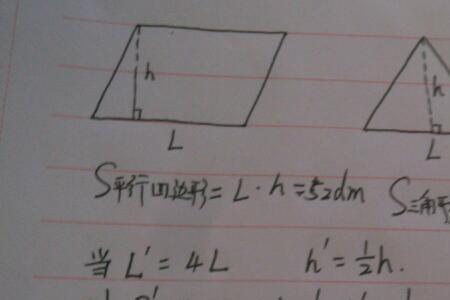 h
h
L
L
S平行四边形 = L · h = 52dm
S三角形
当 L' = 4L h' = 1/2 h.